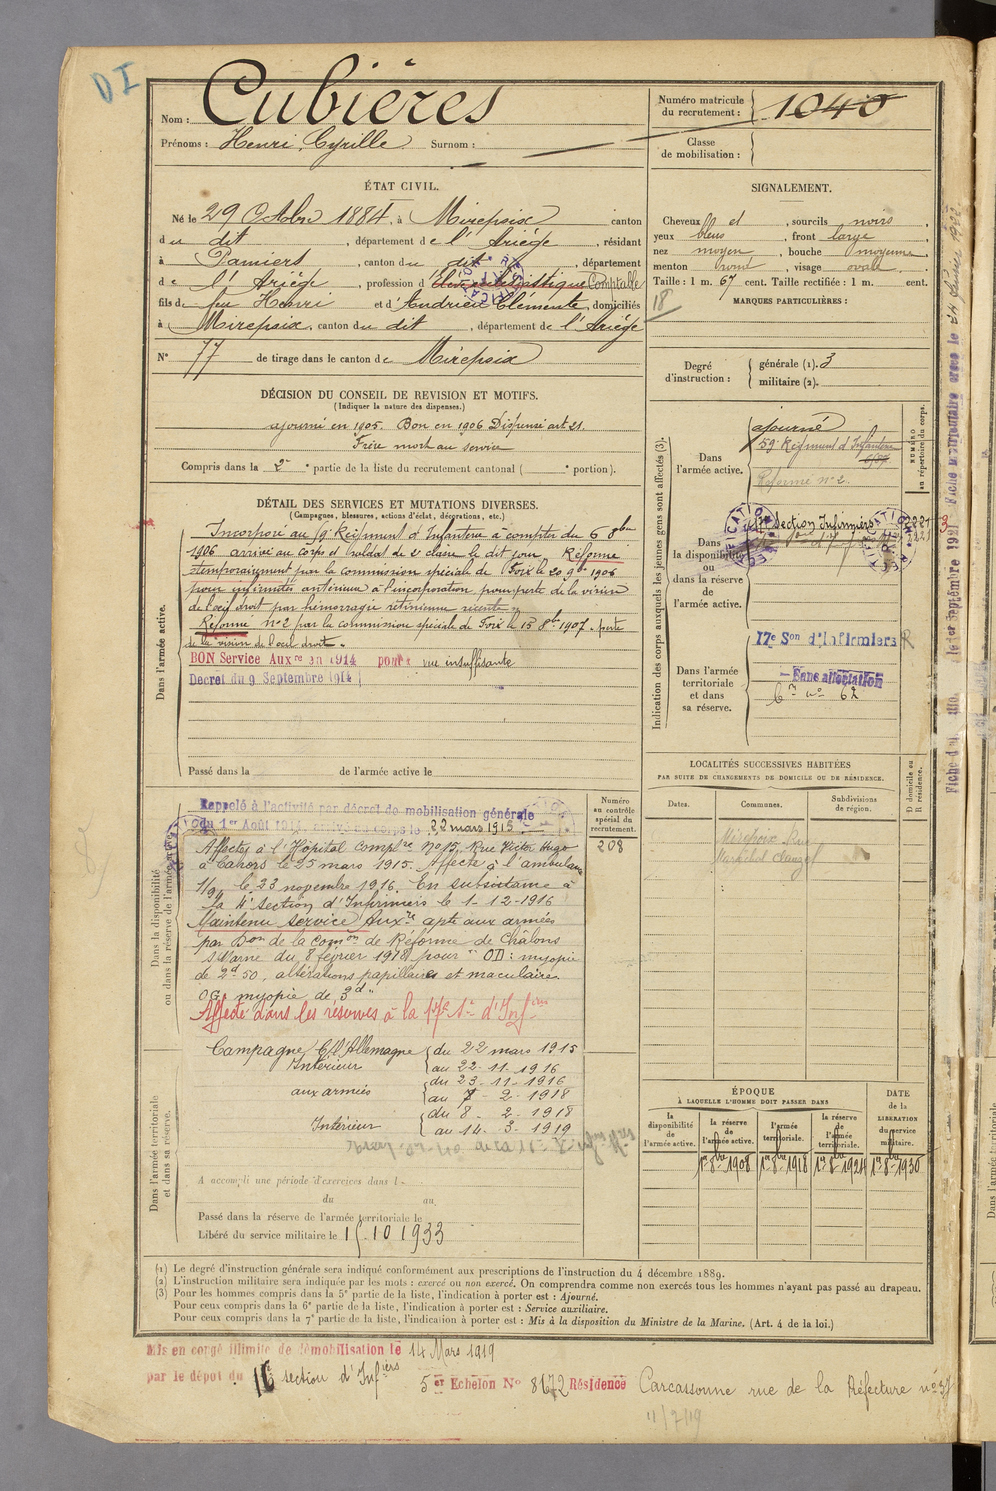 DI
Nom : Cubières
Prénoms : Henri, Cyrille Surnom :
Numéro matricule du recrutement : 1040
Classe de mobilisation :
ÉTAT CIVIL.
Né le 29 Octobre 1884, à Mirepoix canton
du dit, département de l'Ariège, résidant
à Pamiers, canton du dit, département
de l'Ariège, profession d' Comptable
fils de feu Henri et d'Andrieu Clémente, domiciliés
à Mirepoix, canton du dit, département de l'Ariège
N° 77 de tirage dans le canton de Mirepoix
SIGNALEMENT.
Cheveux et, sourcils noirs,
yeux bleus, front large,
nez moyen, bouche moyenne,
menton rond, visage ovale
Taille : 1 m. 67 cent. Taille rectifiée : 1 m. cent.
18
MARQUES PARTICULIÈRES :
Degré d'instruction : générale (1). 3
militaire (2).
DÉCISION DU CONSEIL DE REVISION ET MOTIFS.
(Indiquer la nature des dispenses.)
ajourné en 1905. Bon en 1906 Dispensé art 21.
Frère mort au service
Compris dans la 2e partie de la liste du recrutement cantonal ( e portion).
DÉTAIL DES SERVICES ET MUTATIONS DIVERSES.
(Campagnes, blessures, actions d'éclat, décorations, etc.)
Dans l'armée active.
Incorporé au 59e Régiment d'Infanterie à compter du 6 8bre
1906 arrivé au corps et soldat de 2e classe le dit jour. Réformé
temporairement par la commission spéciale de Foix le 20 9bre 1906
pour infirmités antérieures à l'incorporation pour perte de la vision
de l'oeil droit par hémorragie rétinienne récente
Réformé n°2 par la commission spéciale de Foix le 15 8bre 1907. perte
de la vision de l'oeil droit.
BON Service Auxre en 1914 pour vue insuffisante
Décret du 9 Septembre 1914
Passé dans la de l'armée active le
Indication des corps auxquels les jeunes gens sont affectés (3).
NUMÉRO au répertoire du corps.
Dans l'armée active.
ajourné
59e Régiment d'Infanterie
Réformé n° 2.
Dans la disponibilité ou dans la réserve de l'armée active.
Section Infirmiers
RECTIFICATION
17e Son d'Infirmiers R
Dans l'armée territoriale et dans sa réserve.
Sans affectation
62
LOCALITÉS SUCCESSIVES HABITÉES
PAR SUITE DE CHANGEMENTS DE DOMICILE OU DE RÉSIDENCE.
Dates. Communes. Subdivisions de région. D domicile ou R résidence.
Mirepoix Rue
Maréchal Clauzel
Dans la disponibilité ou dans la réserve de l'armée active.
Numéro au contrôle spécial du recrutement.
208
Rappelé à l'activité par décret de mobilisation générale
du 1er Août 1914, arrivé au corps le 22 mars 1915
Affecté à l'Hôpital Compre N° 15, Rue Victor Hugo
à Cahors le 25 mars 1915. Affecté à l'ambulance
1/94 le 23 novembre 1916. En subsistance à
la section d'Infirmiers le 1-12-1916
Maintenu service Auxre apte aux armées
par Don de la Comon de Réforme de Châlons
s/Marne du 8 février 1918 pour "OD: myopie
de 2d 50, altérations papillaires et maculaires
OG myopie de 3d"
Affecté dans les réserves à la 17e Son d'Infiers
Campagne C/l'Allemagne
Intérieur { du 22 mars 1915
au 22-11-1916
aux armées { du 23-11-1916
au 7-2-1918
Intérieur { du 8-2-1918
au 14-3-1919
Dans l'armée territoriale et dans sa réserve.
A accompli une période d'exercices dans l
du au
Passé dans la réserve de l'armée territoriale le
Libéré du service militaire le 15.10 1933
ÉPOQUE
À LAQUELLE L'HOMME DOIT PASSER DANS
la disponibilité de l'armée active. la réserve de l'armée active. l'armée territoriale. la réserve de l'armée territoriale. DATE de la LIBÉRATION du service militaire.
1er 8bre 1908 1er 8bre 1918 1er 8bre 1924 1er 8bre 1930
(1) Le degré d'instruction générale sera indiqué conformément aux prescriptions de l'instruction du 4 décembre 1889.
(2) L'instruction militaire sera indiquée par les mots : exercé ou non exercé. On comprendra comme non exercés tous les hommes n'ayant pas passé au drapeau.
(3) Pour les hommes compris dans la 5e partie de la liste, l'indication à porter est : Ajourné.
Pour ceux compris dans la 6e partie de la liste, l'indication à porter est : Service auxiliaire.
Pour ceux compris dans la 7e partie de la liste, l'indication à porter est : Mis à la disposition du Ministre de la Marine. (Art. 4 de la loi.)
Mis en congé illimité de démobilisation le 14 Mars 1919
par le dépôt du 16e section d'Infiers 5er Echelon N° 8172 Résidence Carcassonne rue de la Préfecture
11/7/19